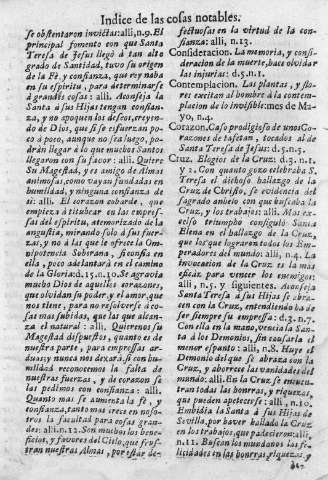 Indice de las cosas notables.
se obstentaron invictas: alli, n.9. El
principal fomento con que Santa
Teresa de Jesus llegò à tan alto
grado de Santidad, tuvo su origen
de la Fè, y confiança, que rey naba
en su espiritu, para determinarse
à grandes cosas: alli. Aconseja la
Santa à sus Hijas tengan confian-
ça, y no apoquen los deseos, creyen-
do de Dios, que si se esfuerzan poco
à poco, aunque no sea luego, po-
dràn llegar à lo que muchos Santos
llegaron con su favor: alli. Quiere
Su Magestad, y es amigo de Almas
animosas, como vayan fundadas en
humildad, y ninguna confiança de
si: alli. El corazon cobarde, que
empieza à titubear en las empres-
sas del espiritu, atemorizado de la
angustia, mirando solo à sus fuer-
zas, y no à las que le ofrece la Om-
nipotencia Soberana, si confia en
ella, poco adelantarà en el camino
de la Gloria: d.15.n.10. Se agravia
mucho Dios de aquellos corazones,
que olvidan su poder, y el amor, que
nos tiene, para no resolverse à co-
sas mas subidas, que las que alcan-
ça el natural: alli. Quierenos su
Magestad dispuestos, quanto es de
nuestra parte, para empressas ar-
duas; y nunca nos dexarà, si con hu-
mildad reconocemos la falta de
nuestras fuerzas, y de corazon se
las pedimos con confiança: alli.
Quanto mas se aumenta la fè, y
confiança, tanto mas crece en noso-
tros la facultad para cosas gran-
des: alli, n.12. Son muchos los bene-
ficios, y favores del Cielo, que frus-
tran nuestras Almas, por estàr de-
fectuosas en la virtud de la con-
fiança: alli, n.13.
Consideracion. La memoria, y consi-
deracion de la muerte, hace olvidar
las injurias: d.5.n.1.
Contemplacion. Las plantas, y flo-
res excitan al hombre à la contem-
placion de lo invisible: mes de Ma-
yo, n.4.
Corazon. Caso prodigioso de unos Co-
razones de tafetan, tocados al de
Santa Teresa de Jesus: d.5.n.5.
Cruz. Elogios de la Cruz: d.3. n.1.
y 2. Con quanto gozo celebraba S.
Teresa el dichoso hallazgo de la
Cruz de Christo, se evidencia del
sagrado anhelo con que buscaba
la Cruz, y los trabajos: alli. Mas ex-
celso triumpho consiguiò Santa
Elena en el hallazgo de la Cruz,
que los que lograron todos los Em-
peradores del mundo: alli, n.4. La
invocacion de la Cruz es la mas
eficaz para vencer los enemigos:
alli, n.5. y siguientes. Aconseja
Santa Teresa à sus Hijas se abra-
cen con la Cruz, entendiendo ha de
ser siempre su empressa: d.3. n.7.
Con ella en la mano, vencia la San-
ta à los Demonios, sin causarla el
menor espanto: alli, n.8. Huye el
Demonio del que se abraza con la
Cruz, y aborrece las vanidades del
mundo: alli. En la Cruz se encuen-
tran todas las honras, y riquezas,
que pueden apetecerse: alli, n.10.
Embidia la Santa à sus Hijas de
Sevilla, por haver hallado la Cruz
en los trabajos, que padecieron: alli,
n.11. Buscan los mundanos las fe-
licidades en las honras, riquezas, y